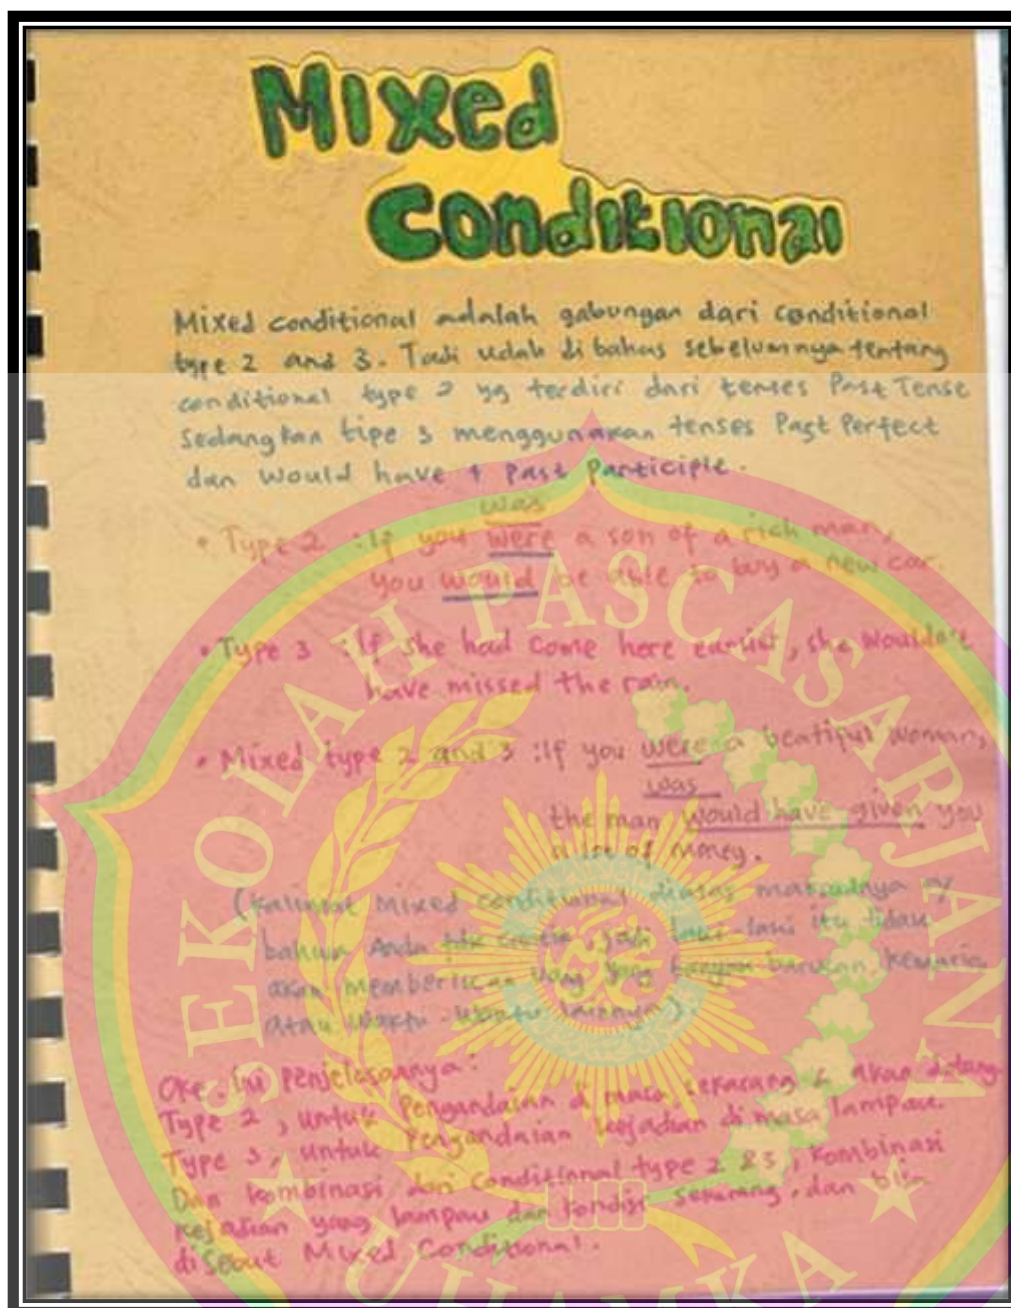 Mixed
Conditional
Mixed conditional adalah gabungan dari conditional
type 2 and 3. Tadi udah di bahas sebelumnya tentang
conditional type 2 yg terdiri dari tenses Past Tense
Sedangkan tipe 3 menggunakan tenses Past Perfect
dan Would have + Past Participle.
was
• Type 2 : If you were a son of a rich man,
you would be able to buy a new car.
• Type 3 : If she had come here earlier, she wouldn't
have missed the rain.
• Mixed type 2 and 3 : If you were a beatiful woman,
was
the man would have given you
a lot of money.
(Kalimat Mixed conditional diatas maksudnya
bahwa Anda jadi laki-laki itu tidak
akan memberikan uang yang banyak kemarin
atau waktu-waktu lainnya).
Oke. Ini Penjelasannya:
Type 2, untuk Pengandaian di masa sekarang & akan datang.
Type 3, untuk Pengandaian kejadian di masa lampau.
Dan kombinasi dari Conditional type 2 & 3, kombinasi
kejadian yang lampau dan kondisi sekarang, dan bisa
disebut Mixed Conditional.
SEKOLAH PASCASARJANA
UHAMKA